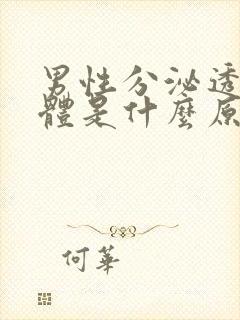 男性分泌透
體是什麼原
何華